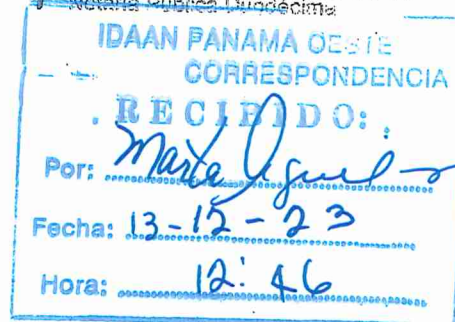 Notaria Pública Duodécima
IDAAN PANAMA OESTE
CORRESPONDENCIA
RECIBIDO:
Por: Marta
Fecha: 13-12-23
Hora: 12:46